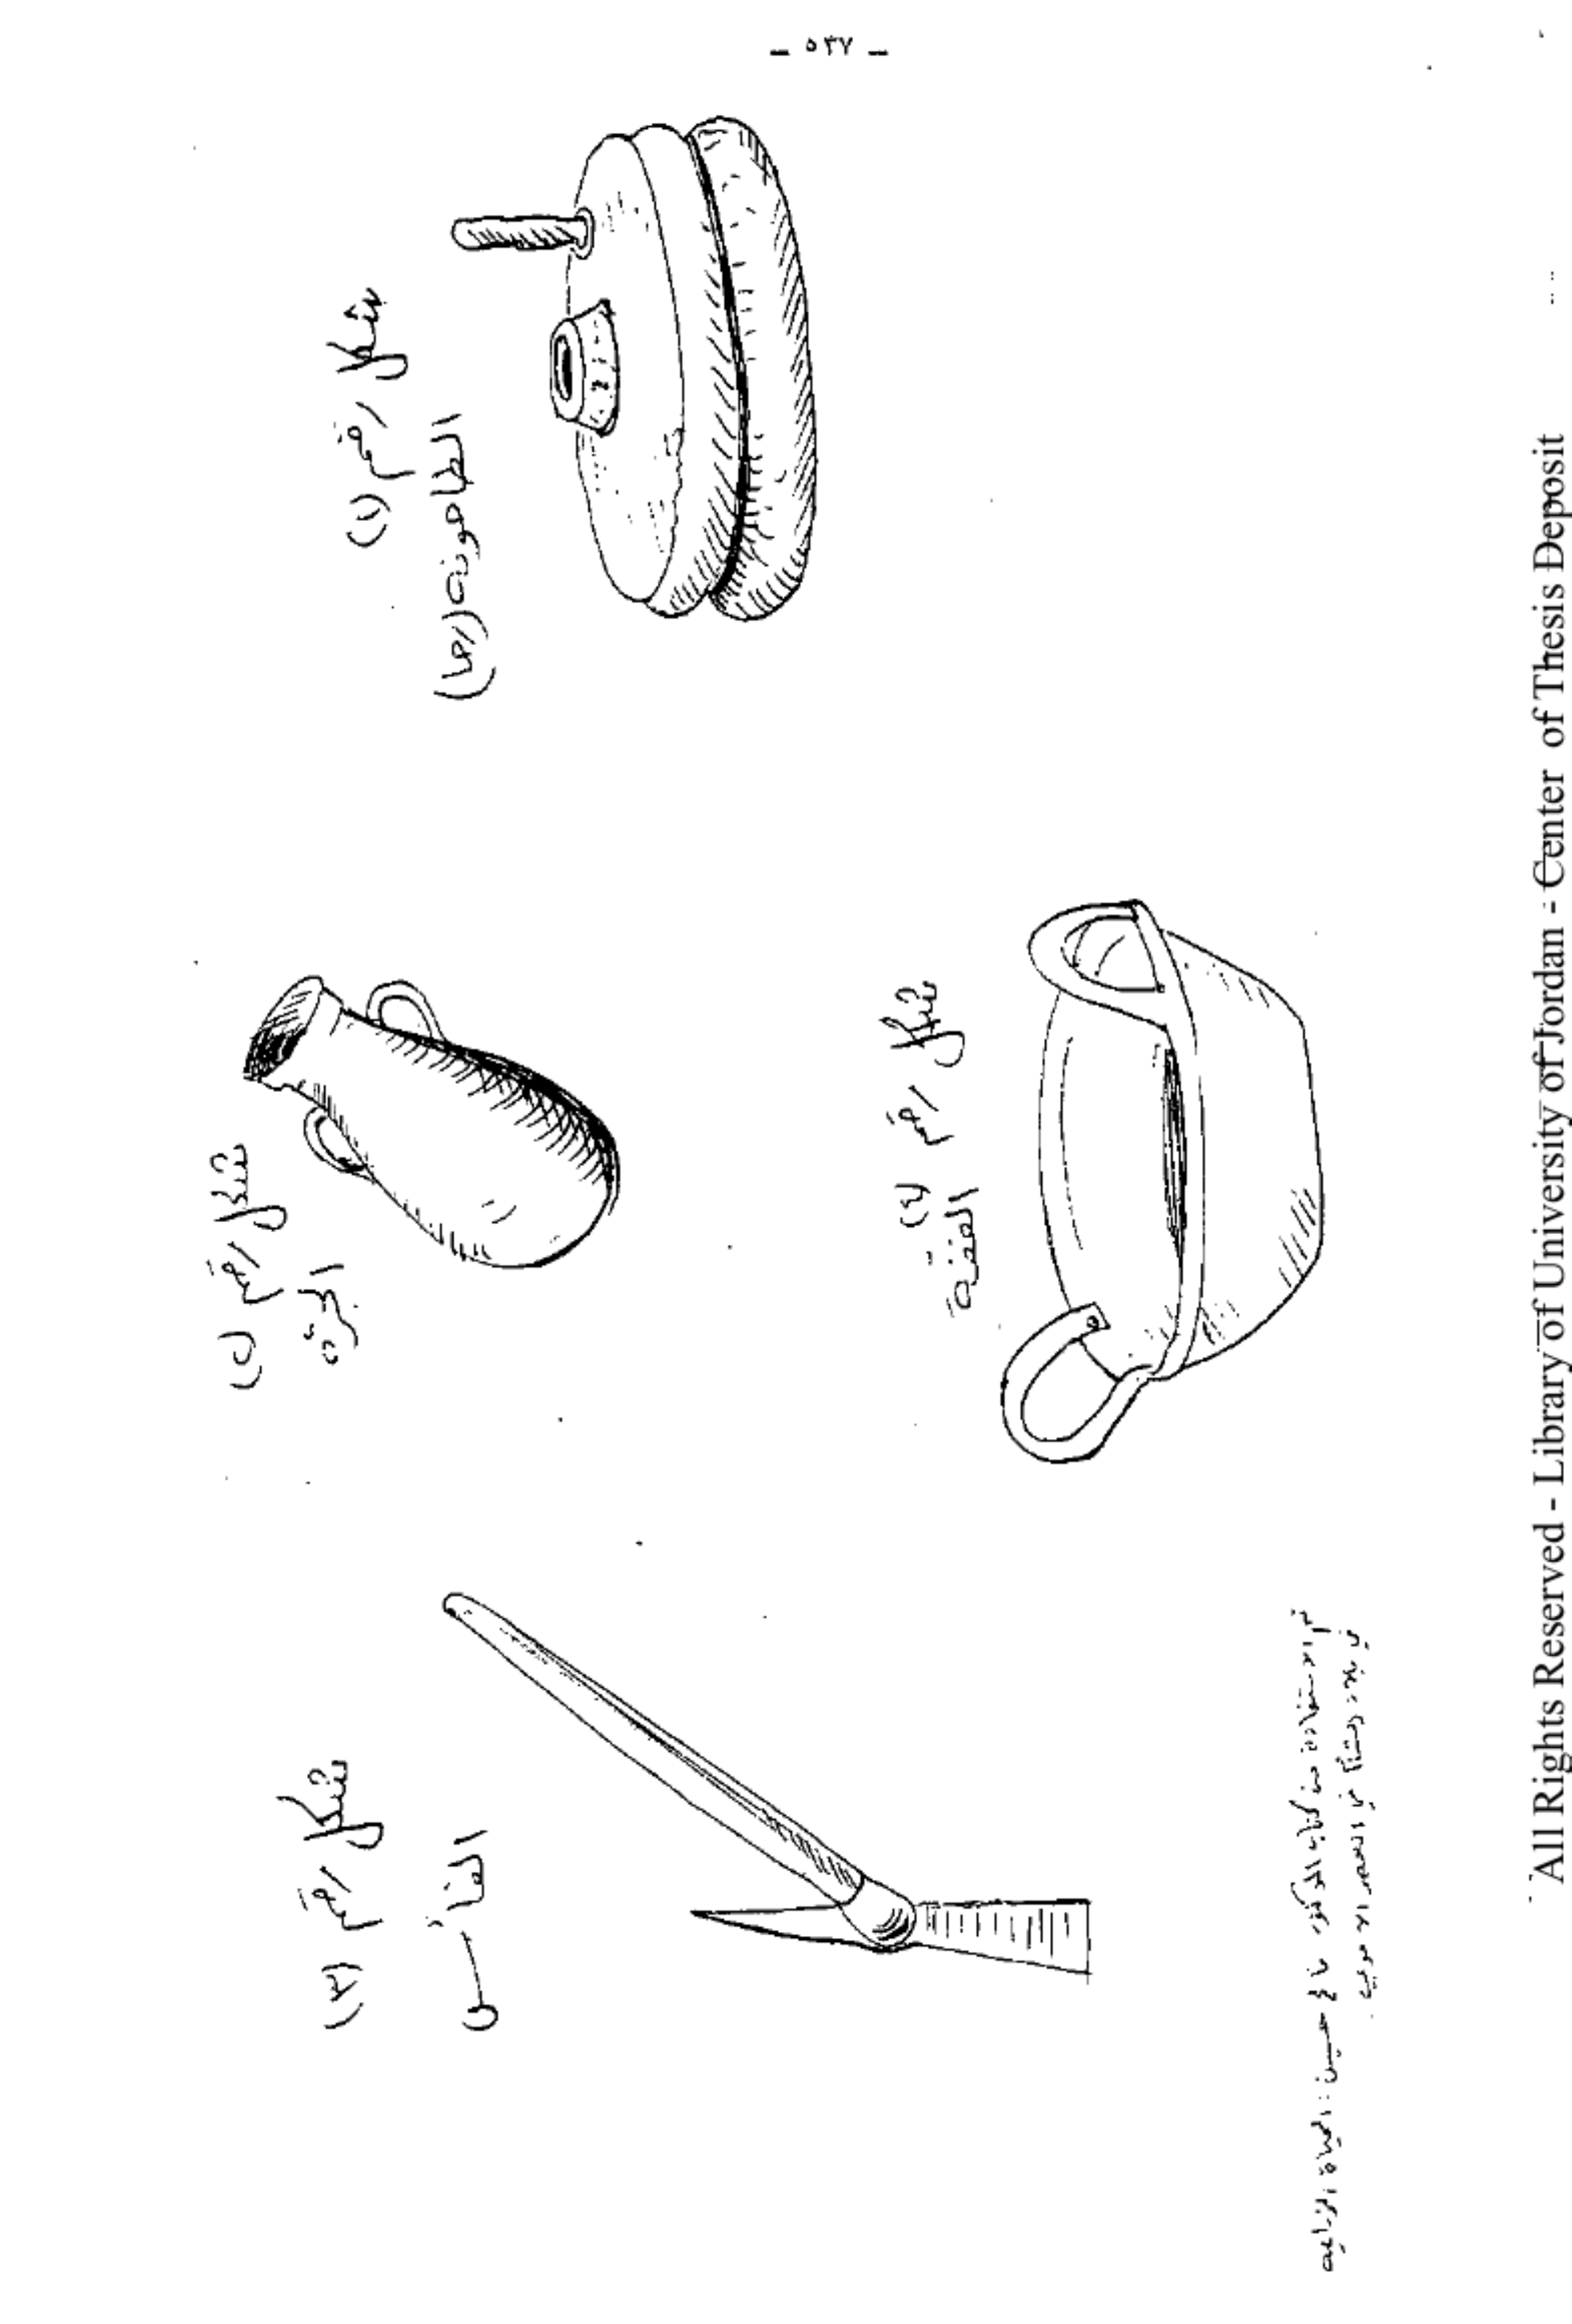 - ٥٣٧ -
شكل رقم (١)
الطاحونة (رحا)
شكل رقم (٢)
الجرّة
شكل رقم (٤)
القفّة
شكل رقم (٣)
الفأس
تم الاستفادة من كتاب الدكتور فالح حسين : الحياة الزراعية
في بلاد الشام في العصر الأموي .
All Rights Reserved - Library of University of Jordan - Center of Thesis Deposit